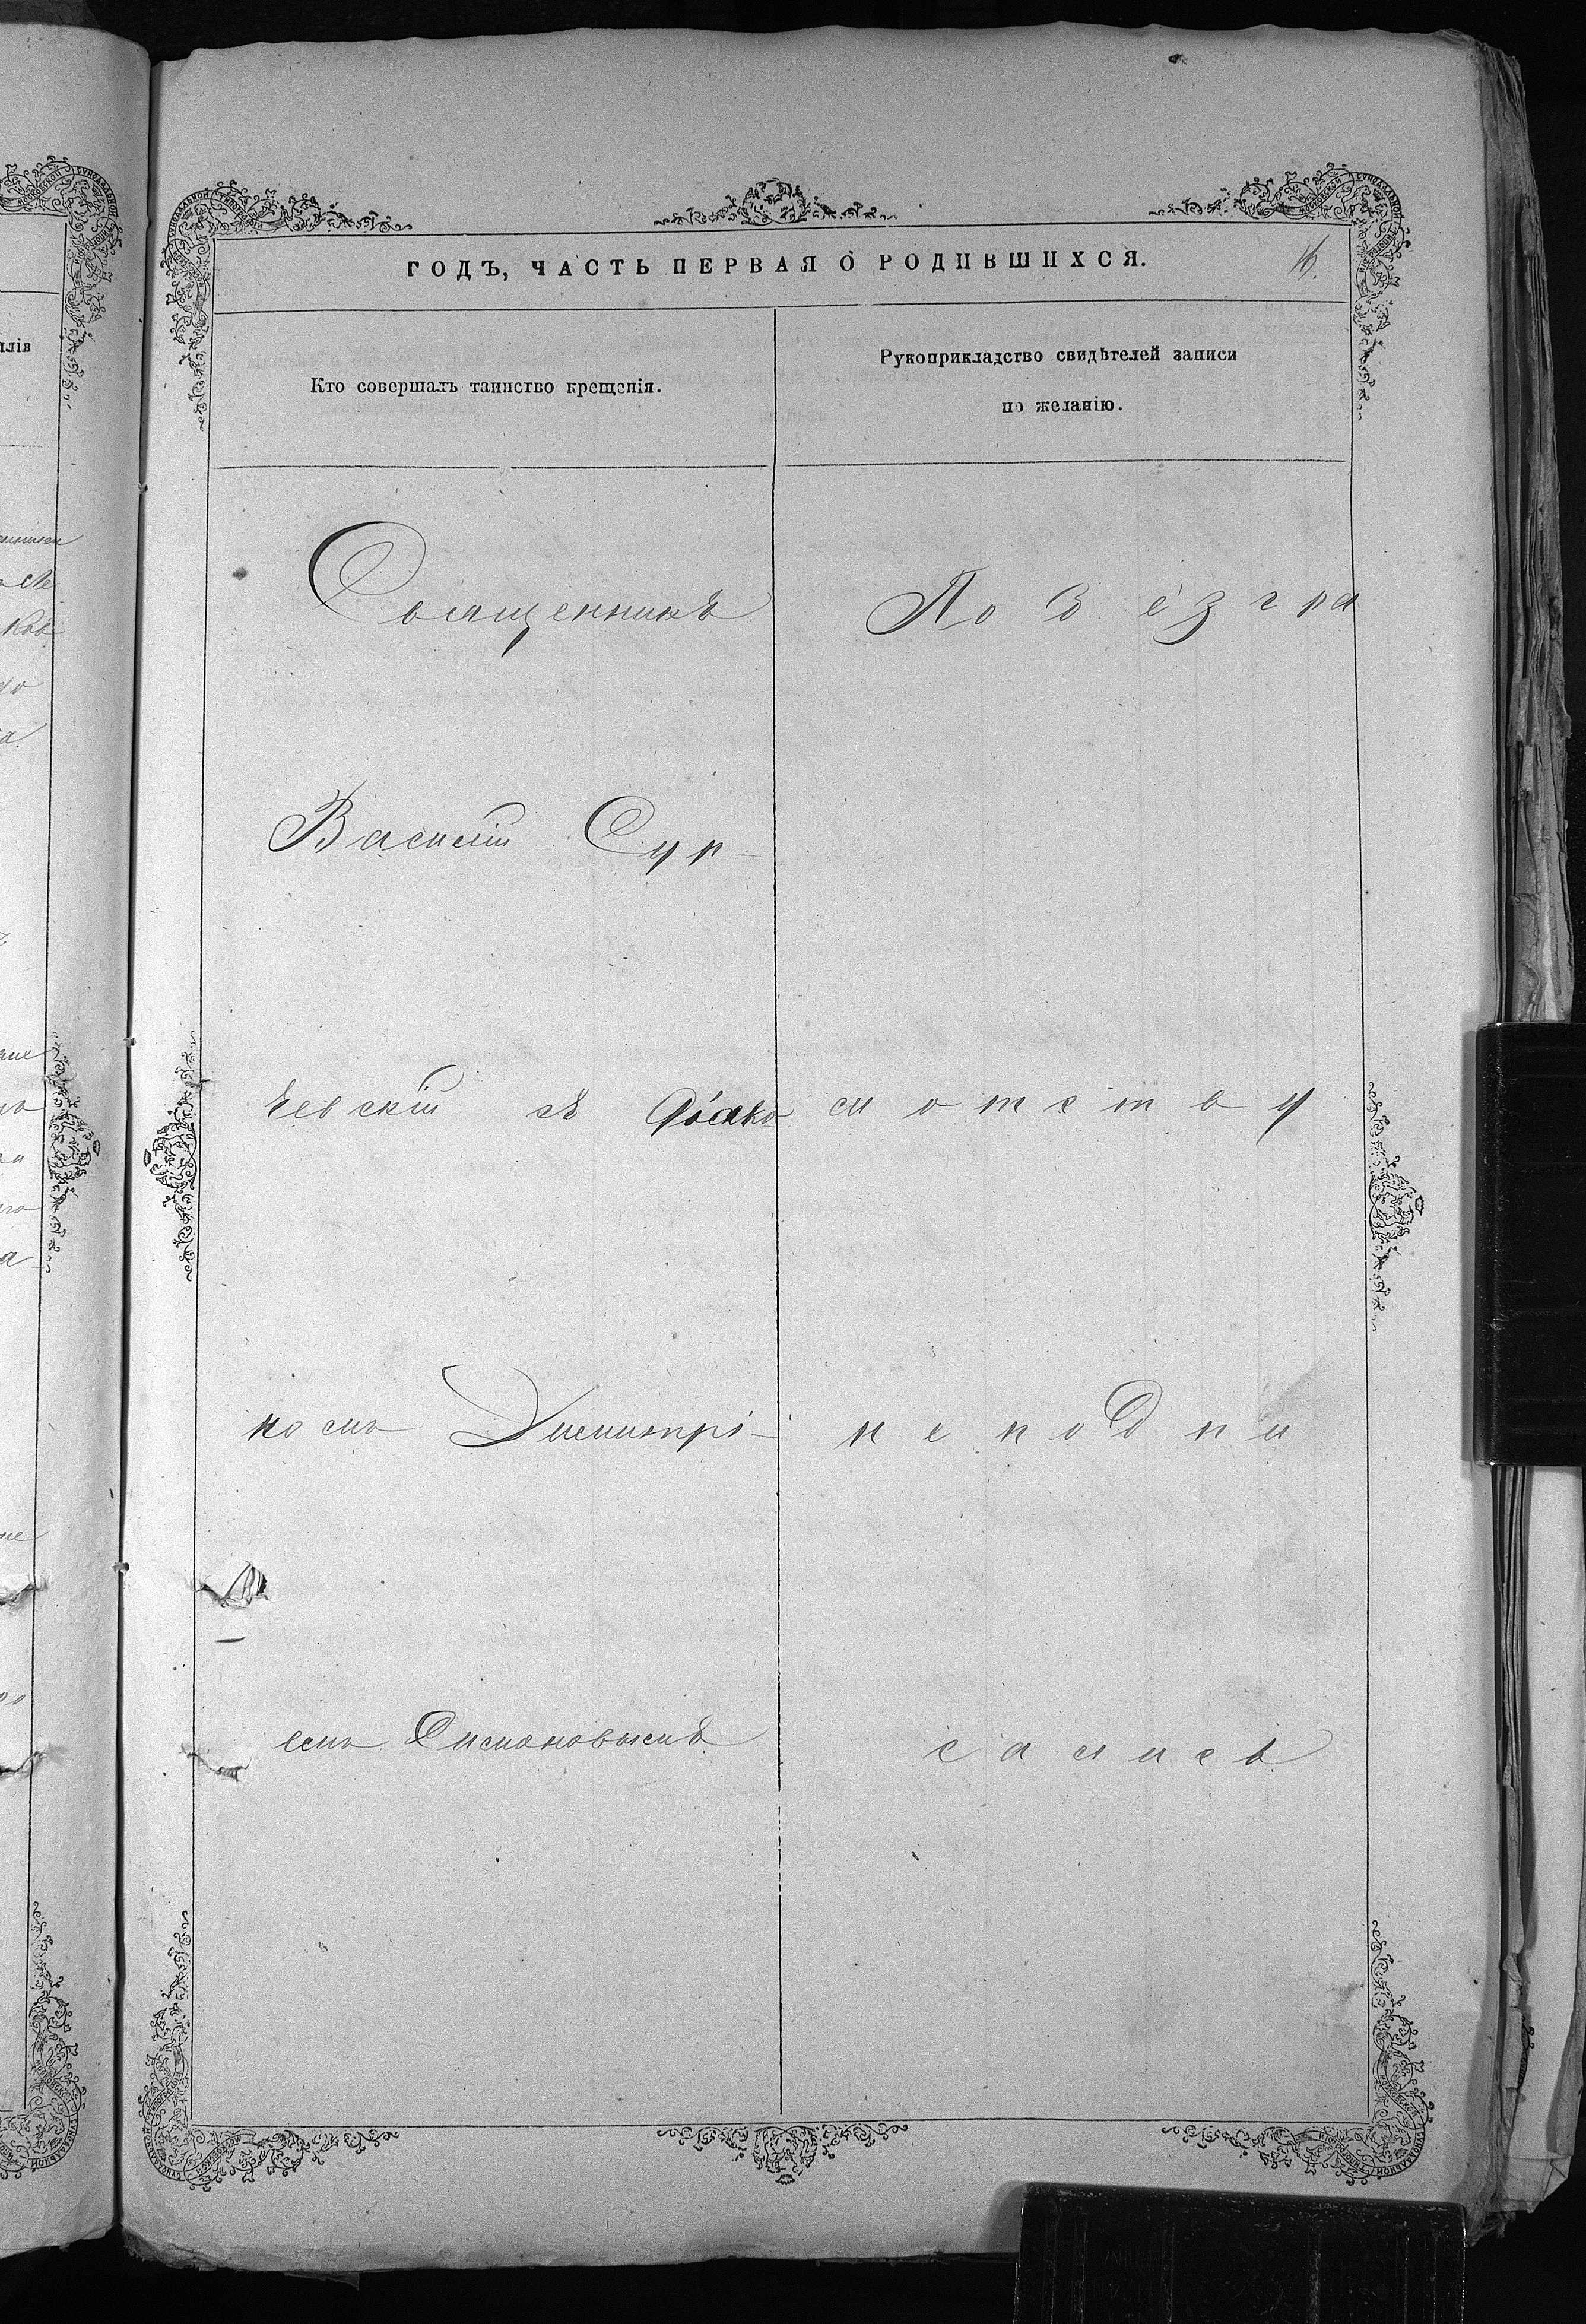 ГОДЪ, ЧАСТЬ ПЕРВАЯ О РОДИВШИХСЯ.
16.
Кто совершалъ таинство крещенія.
Рукоприкладство свидѣтелей записи
по желанію.
Священникъ
Василій Сур-
ѣевскій съ діако
номъ Димитрі-
емъ Симановымъ
По безгра
мотству
не подпи
сались